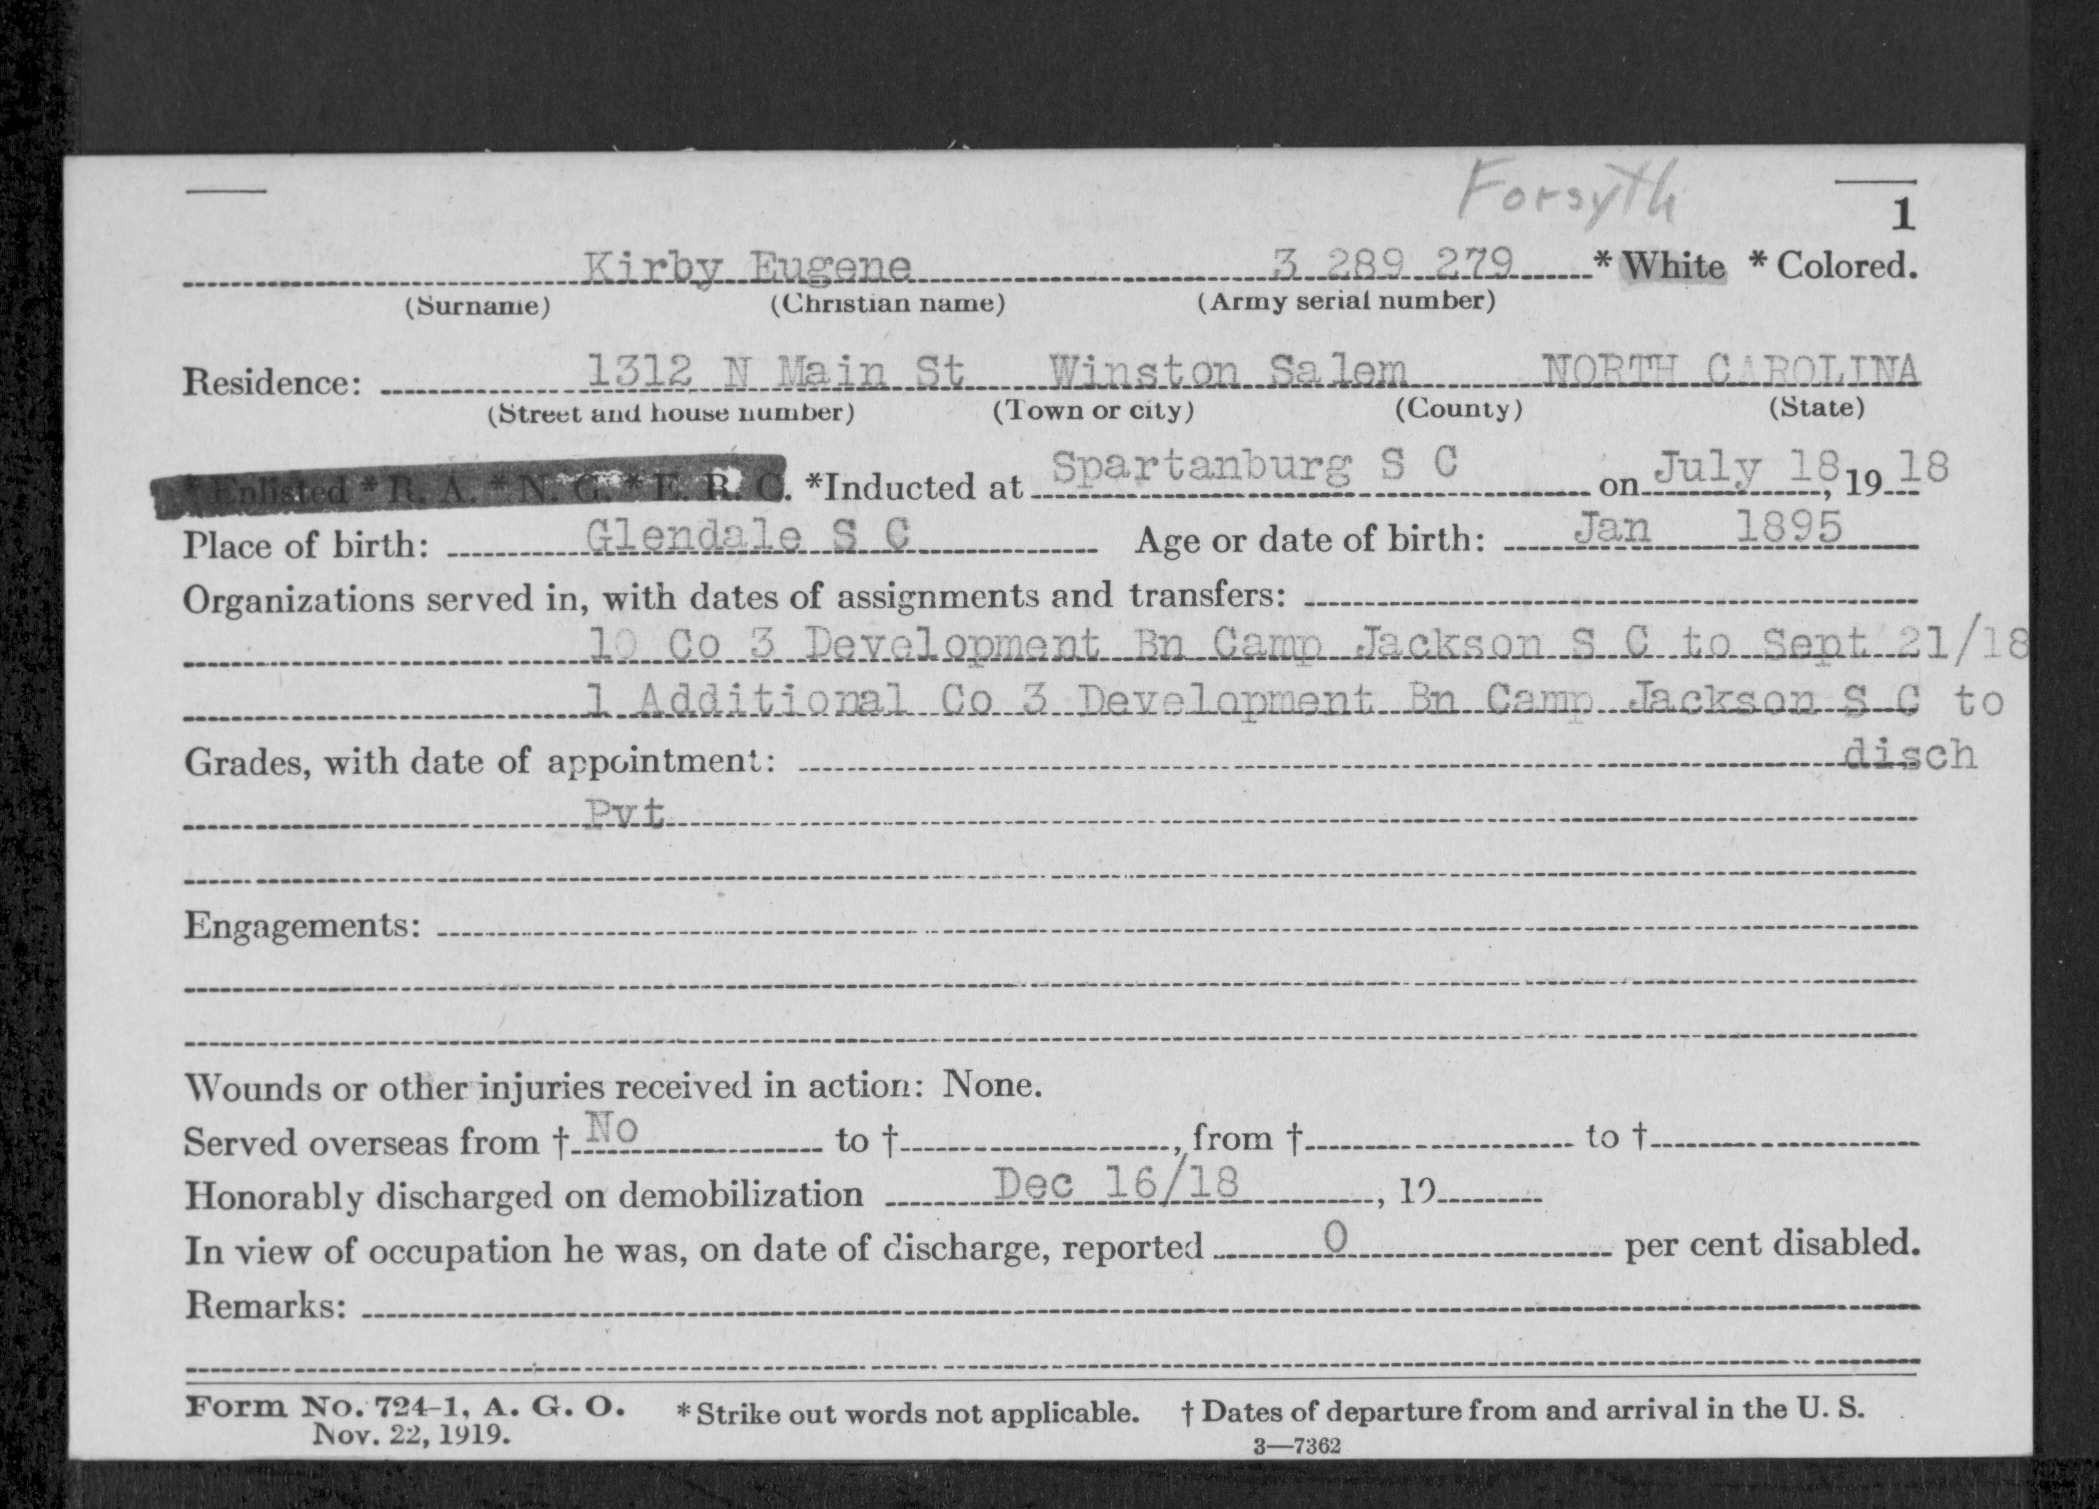 Forsyth
1
Kirby Eugene 3 289 279 * White * Colored.
(Surname) (Christian name) (Army serial number)
Residence: 1312 N Main St Winston Salem NORTH CAROLINA
(Street and house number) (Town or city) (County) (State)
* Enlisted * R. A. * N. G. * E. R. C. *Inducted at Spartanburg S C on July 18, 19 18
Place of birth: Glendale S C Age or date of birth: Jan 1895
Organizations served in, with dates of assignments and transfers:
10 Co 3 Development Bn Camp Jackson S C to Sept 21/18
1 Additional Co 3 Development Bn Camp Jackson S C to
Grades, with date of appointment: disch
Pvt
Engagements:
Wounds or other injuries received in action: None.
Served overseas from † No to †, from † to †
Honorably discharged on demobilization Dec 16/18, 19
In view of occupation he was, on date of discharge, reported 0 per cent disabled.
Remarks:
Form No. 724-1, A. G. O. * Strike out words not applicable. † Dates of departure from and arrival in the U. S.
Nov. 22, 1919. 3—7362